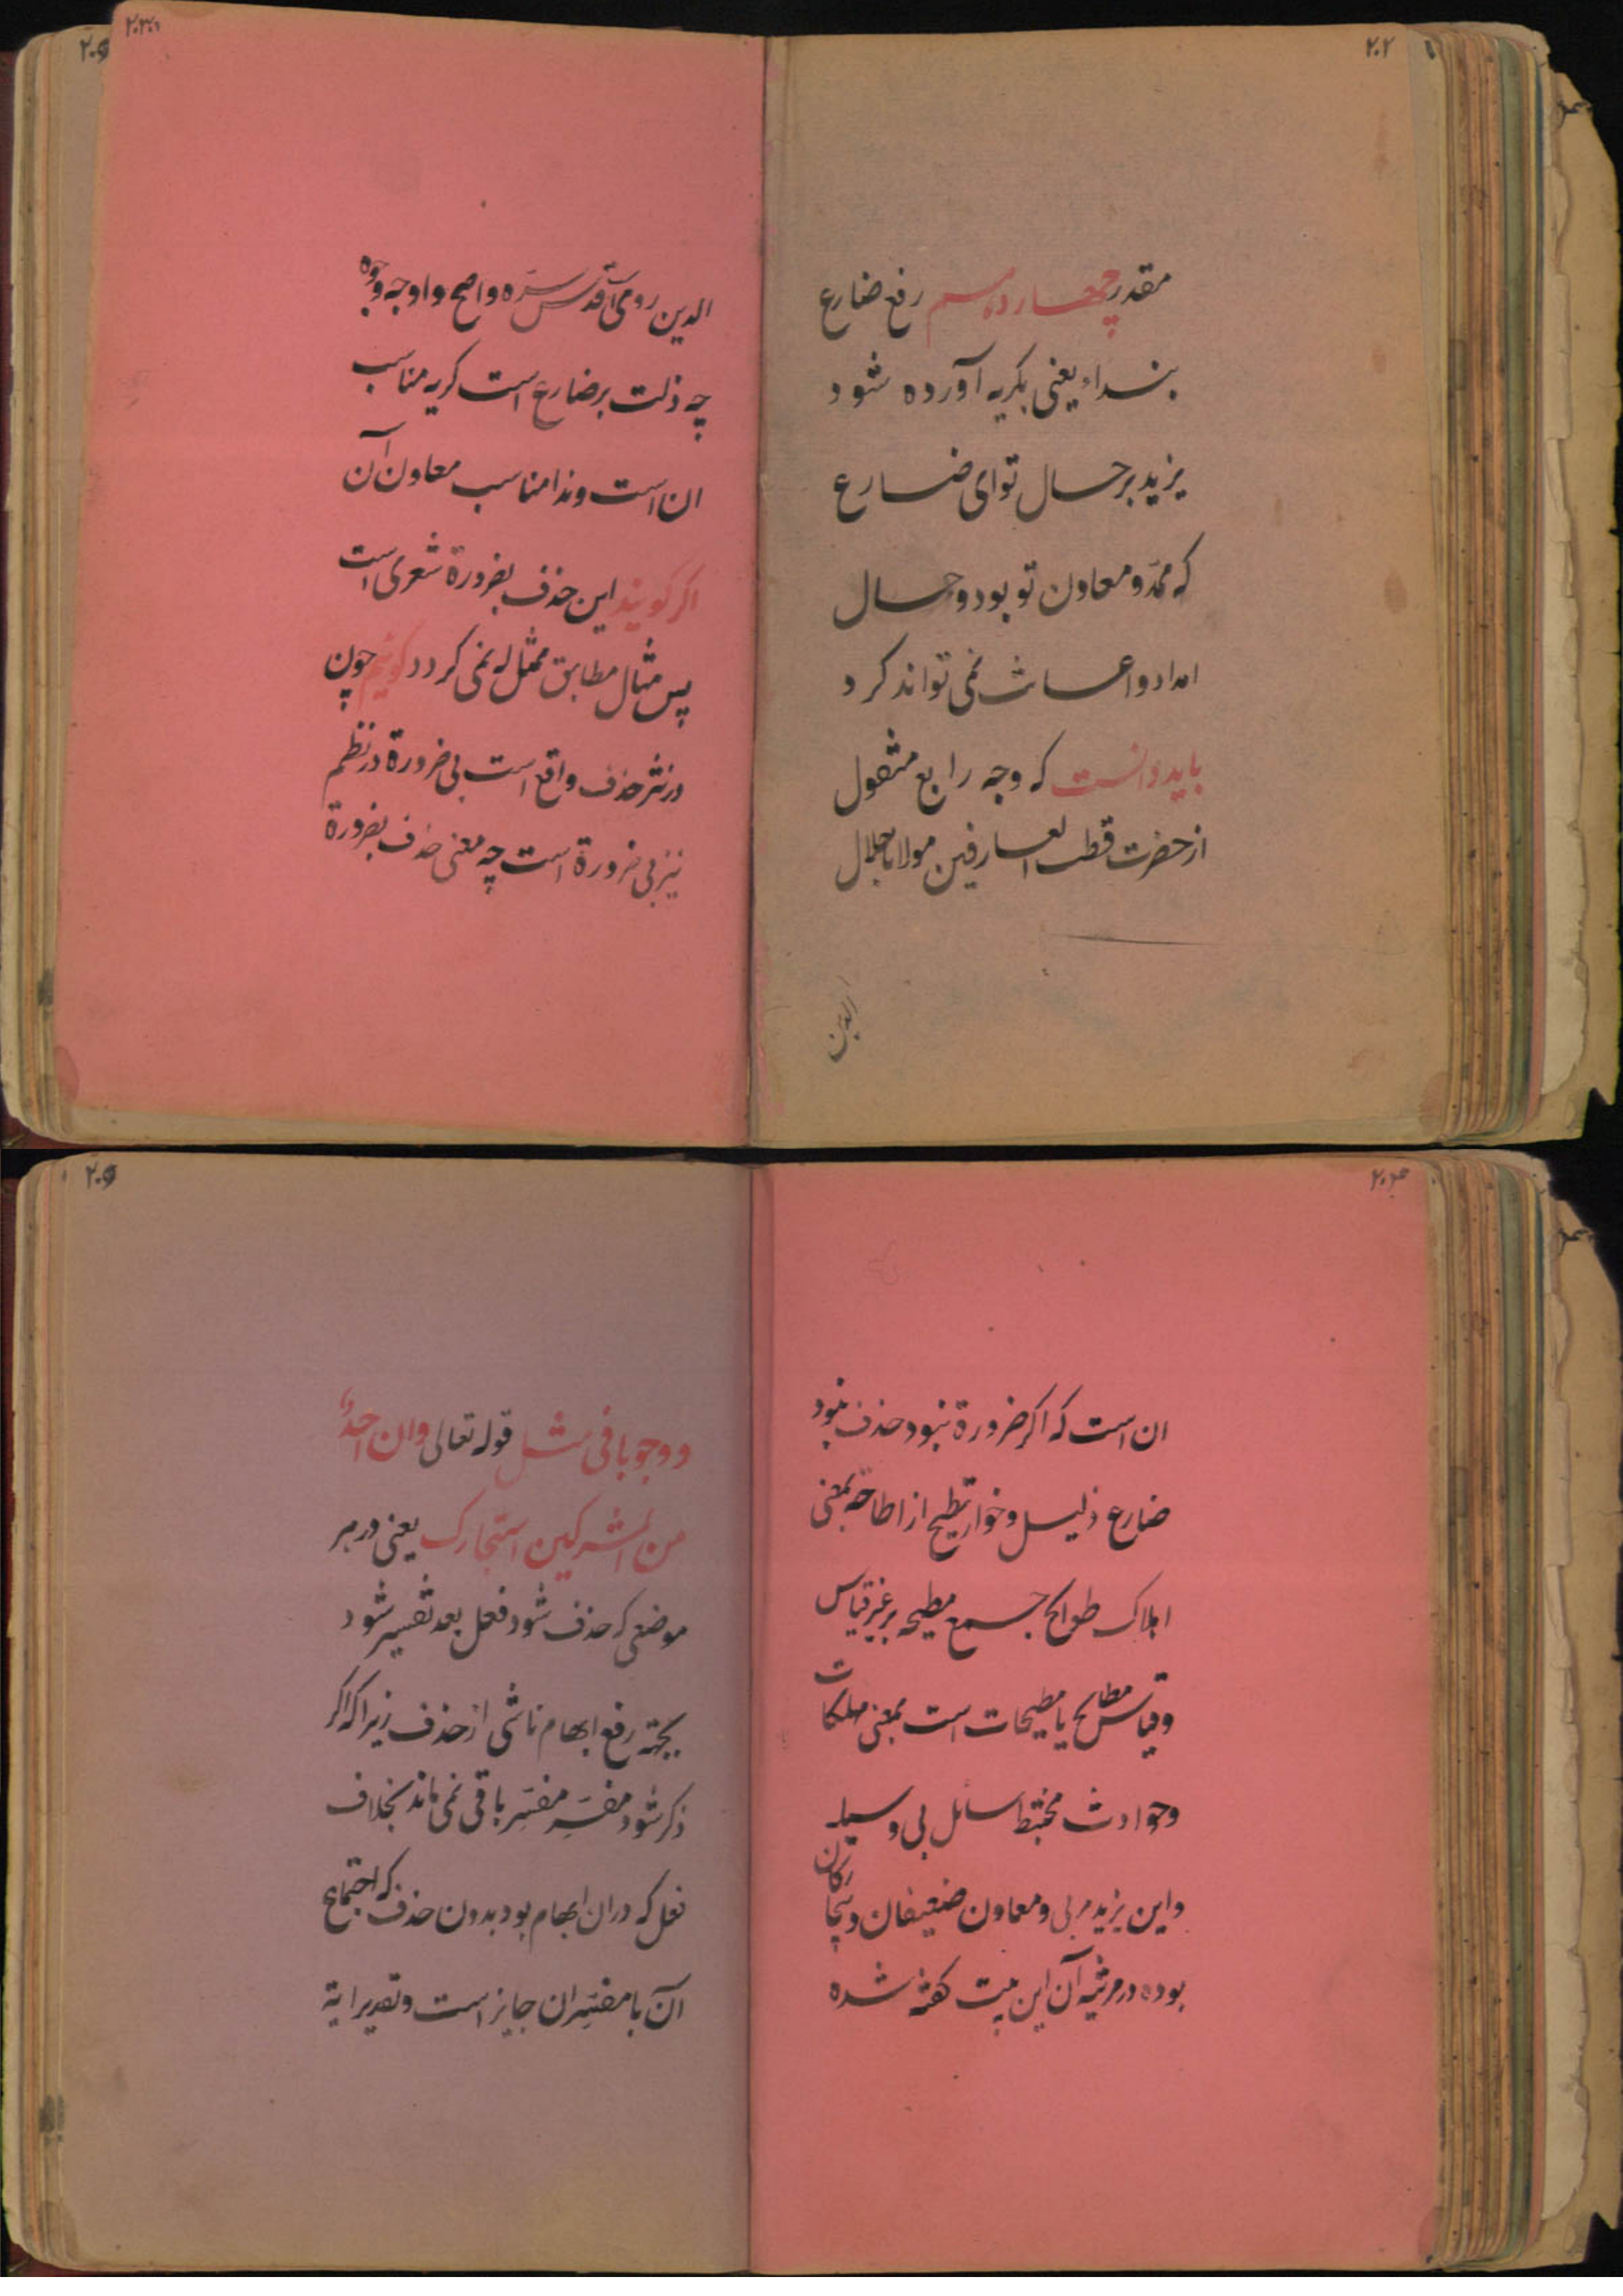 ۲۰۲
مقدر چهاردهم رفع ضارع
بنداء یعنی بکریه آورده شود
یزید بر حال تو ای ضارع
که ممد و معاون تو بود و حال
امداد و اعانت نمی تواند کرد
باید دانست که وجه رابع منقول
از حضرت قطب العارفین مولانا جلال
الدین
الدین رومی است قدس سره واضح و اوجه وجوه
چه ذلت بر ضارع است کریه مناسب
ان است و ندا مناسب معاون آن
اکر کویند این حذف بضرورة شعری است
پس مثال مطابق ممثل له نمی کردد کوئیم چون
در نثر حذف واقع است بی ضرورة در نظم
نیز بی ضرورة است چه معنی حذف بضرورة
ان است که اکر ضرورة نبود حذف نبود
ضارع ذلیل و خوار تطیح از اطاحة بمعنی
اهلاک طوایح جمع مطیحه بر غیر قیاس
و قیاس مطایح یا مطیحات است بمعنی مهلکات
و حوادث مختبط سائل بی وسیله
و این یزید مربی و معاون ضعیفان و بیچارکان
بوده در مرثیه آن این بیت کفته شده
۲۰۵
و وجوبا فی مثل قوله تعالی وان احد
من المشرکین استجارک یعنی در هر
موضعی که حذف شود فعل بعد تفسیر شود
بجهته رفع ابهام ناشی از حذف زیرا که اکر
ذکر شود مفسَر مفسِر باقی نمی ماند بخلاف
فعل که در ان ابهام بود بدون حذف که اجتماع
آن با مفسران جایز است و تقدیر ایة